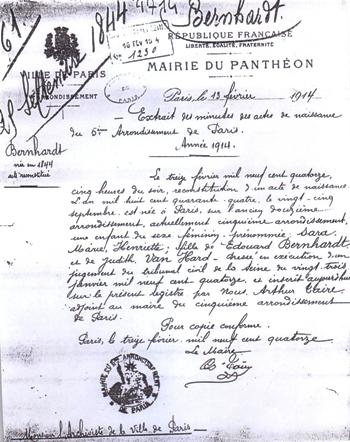 61.
25 Septembre 1844
4474
Bernhardt.
16 FEV 1914
1230
RÉPUBLIQUE FRANÇAISE
LIBERTÉ, ÉGALITÉ, FRATERNITÉ
VILLE DE PARIS
ARRONDISSEMENT
MAIRIE DU PANTHÉON
Paris, le 13 février 1914
Extrait des minutes des actes de naissance
du 5e Arrondissement de Paris.
Année 1914.
Bernhardt
née en 1844
acte reconstitué
Le treize février mil neuf cent quatorze,
cinq heures du soir, reconstitution d'un acte de naissance.
L'an mil huit cent quarante-quatre, le vingt-cinq
septembre est née à Paris, sur l'ancien douzième
arrondissement, actuellement cinquième arrondissement,
une enfant du sexe féminin, prénommée Sara
Marie Henriette, fille de Edouard Bernhardt
et de Judith Van Hard - dressé en exécution d'un
jugement du tribunal civil de la Seine du vingt trois
janvier mil neuf cent quatorze, et inscrit aujourd'hui
sur le présent registre par Nous, Arthur Claire
adjoint au maire du cinquième arrondissement
de Paris.
Pour copie conforme.
Paris, le treize février mil neuf cent quatorze
Le Maire
MAIRIE DU 5e ARRONDISSEMENT
DE PARIS
Monsieur l'Archiviste de la Ville de Paris